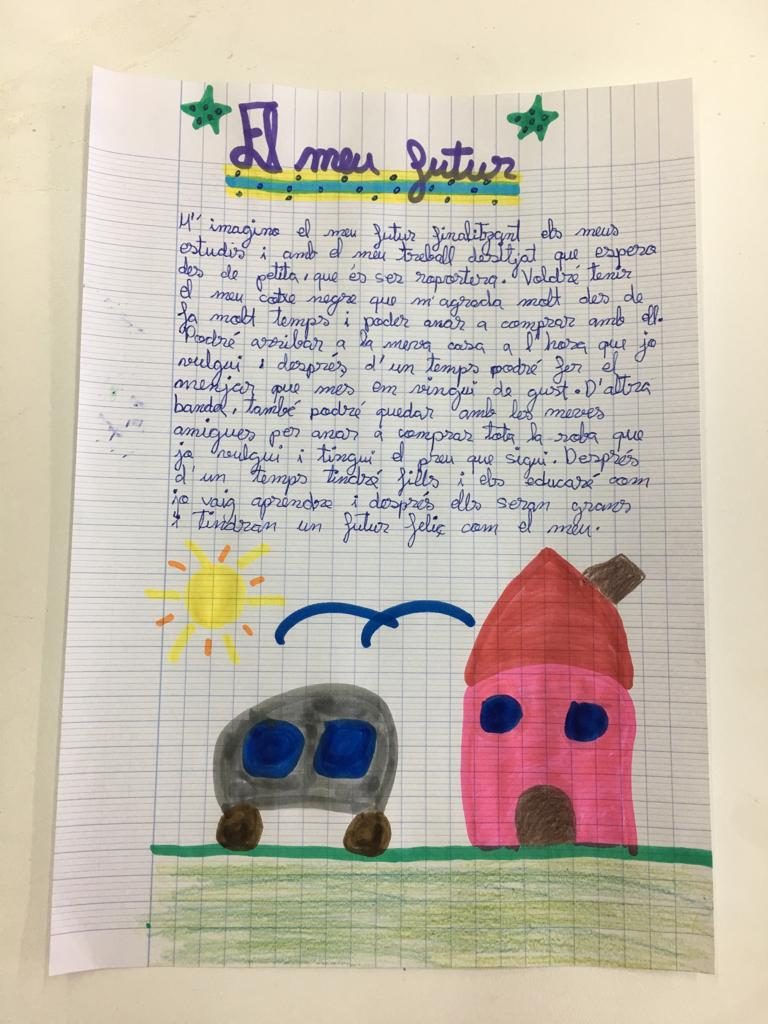 El meu futur
M' imagino el meu futur finalitzant els meus
estudis i amb el meu treball desitjat que espero
des de petita, que és ser raportera. Voldré tenir
el meu cotxe negre que m'agrada molt des de
fa molt temps i poder anar a comprar amb ell.
Podré arribar a la meva casa a l'hora que jo
vulgui i després d'un temps podré fer el
menjar que mes em vingui de gust. D'altra
banda, també podré quedar amb les meves
amigues per anar a comprar tota la roba que
jo vulgui i tingui el preu que sigui. Després
d'un temps tindré fills i els educaré com
jo vaig aprendre i després ells seran grans
i tindran un futur feliç com el meu.